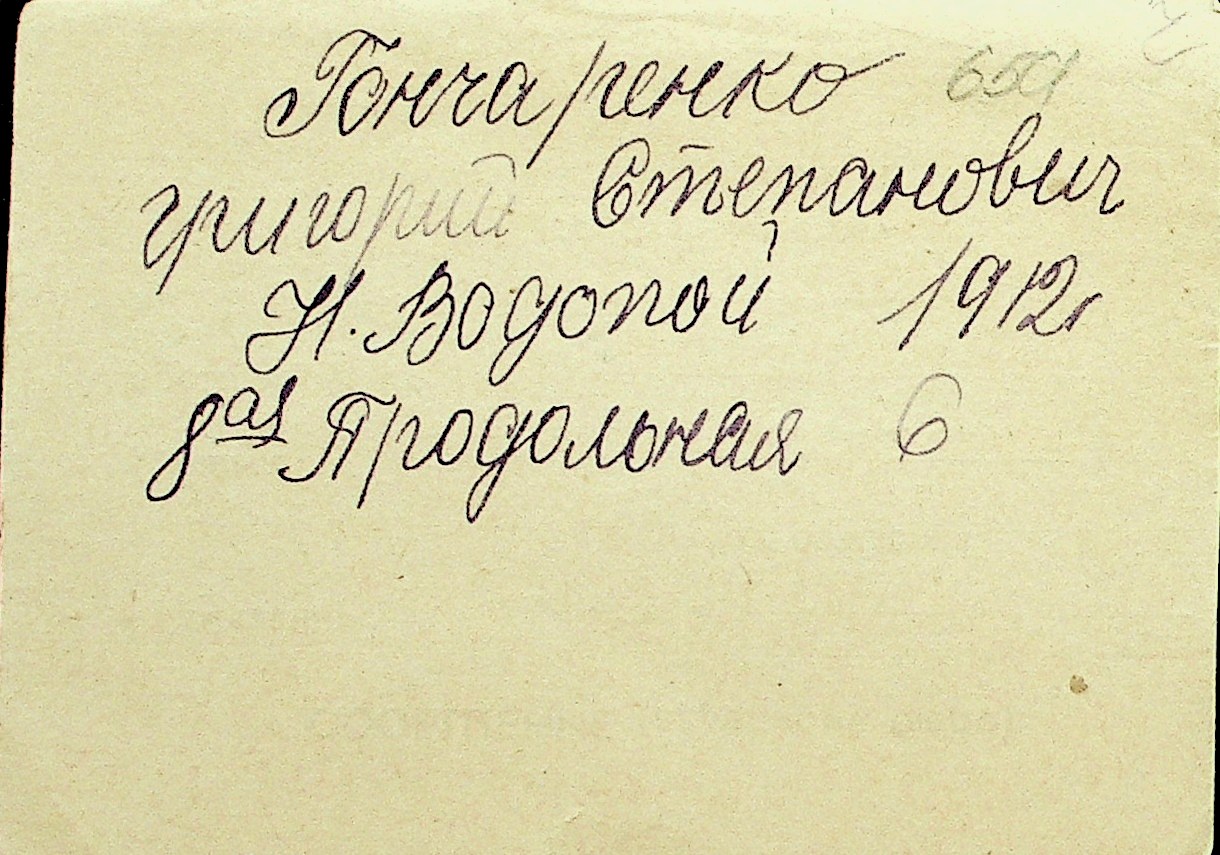 Гончаренко 659
григорий Степанович
Н. Водопой 1912г
8ая Продольная 6